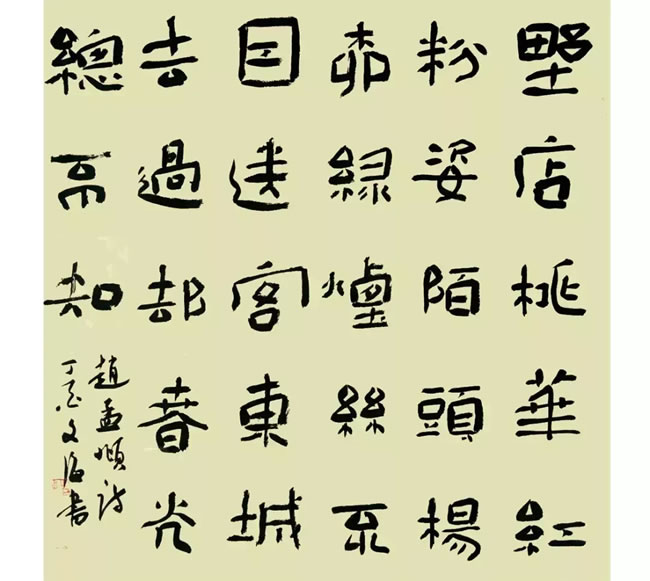 野店桃華紅
粉姿陌頭楊
柳緑煙絲不
因送客東城
去過却春光
總不知
趙孟頫詩
丁酉文海書